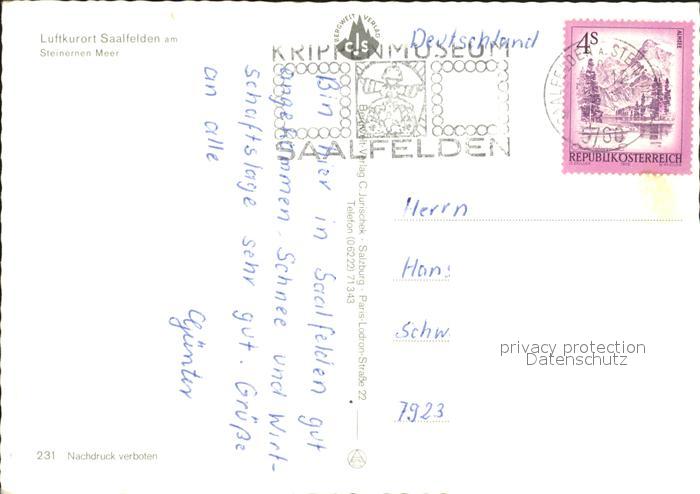 Luftkurort Saalfelden am
Steinernen Meer
BERGWELT VERLAG
CJS
KRIPPENMUSEUM
SAALFELDEN
Deutschland
4S
ALMSEE
REPUBLIK ÖSTERREICH
5760
Bin hier in Saalfelden gut
angekommen. Schnee und Wirt-
schaftslage sehr gut. Grüße
an alle
Günter
Bergwelt-Verlag C. Jurischek · Salzburg · Paris-Lodron-Straße 22
Telefon (0 62 22) 71 3 43
Herrn
Hans
Schw
7923
privacy protection
Datenschutz
231 Nachdruck verboten